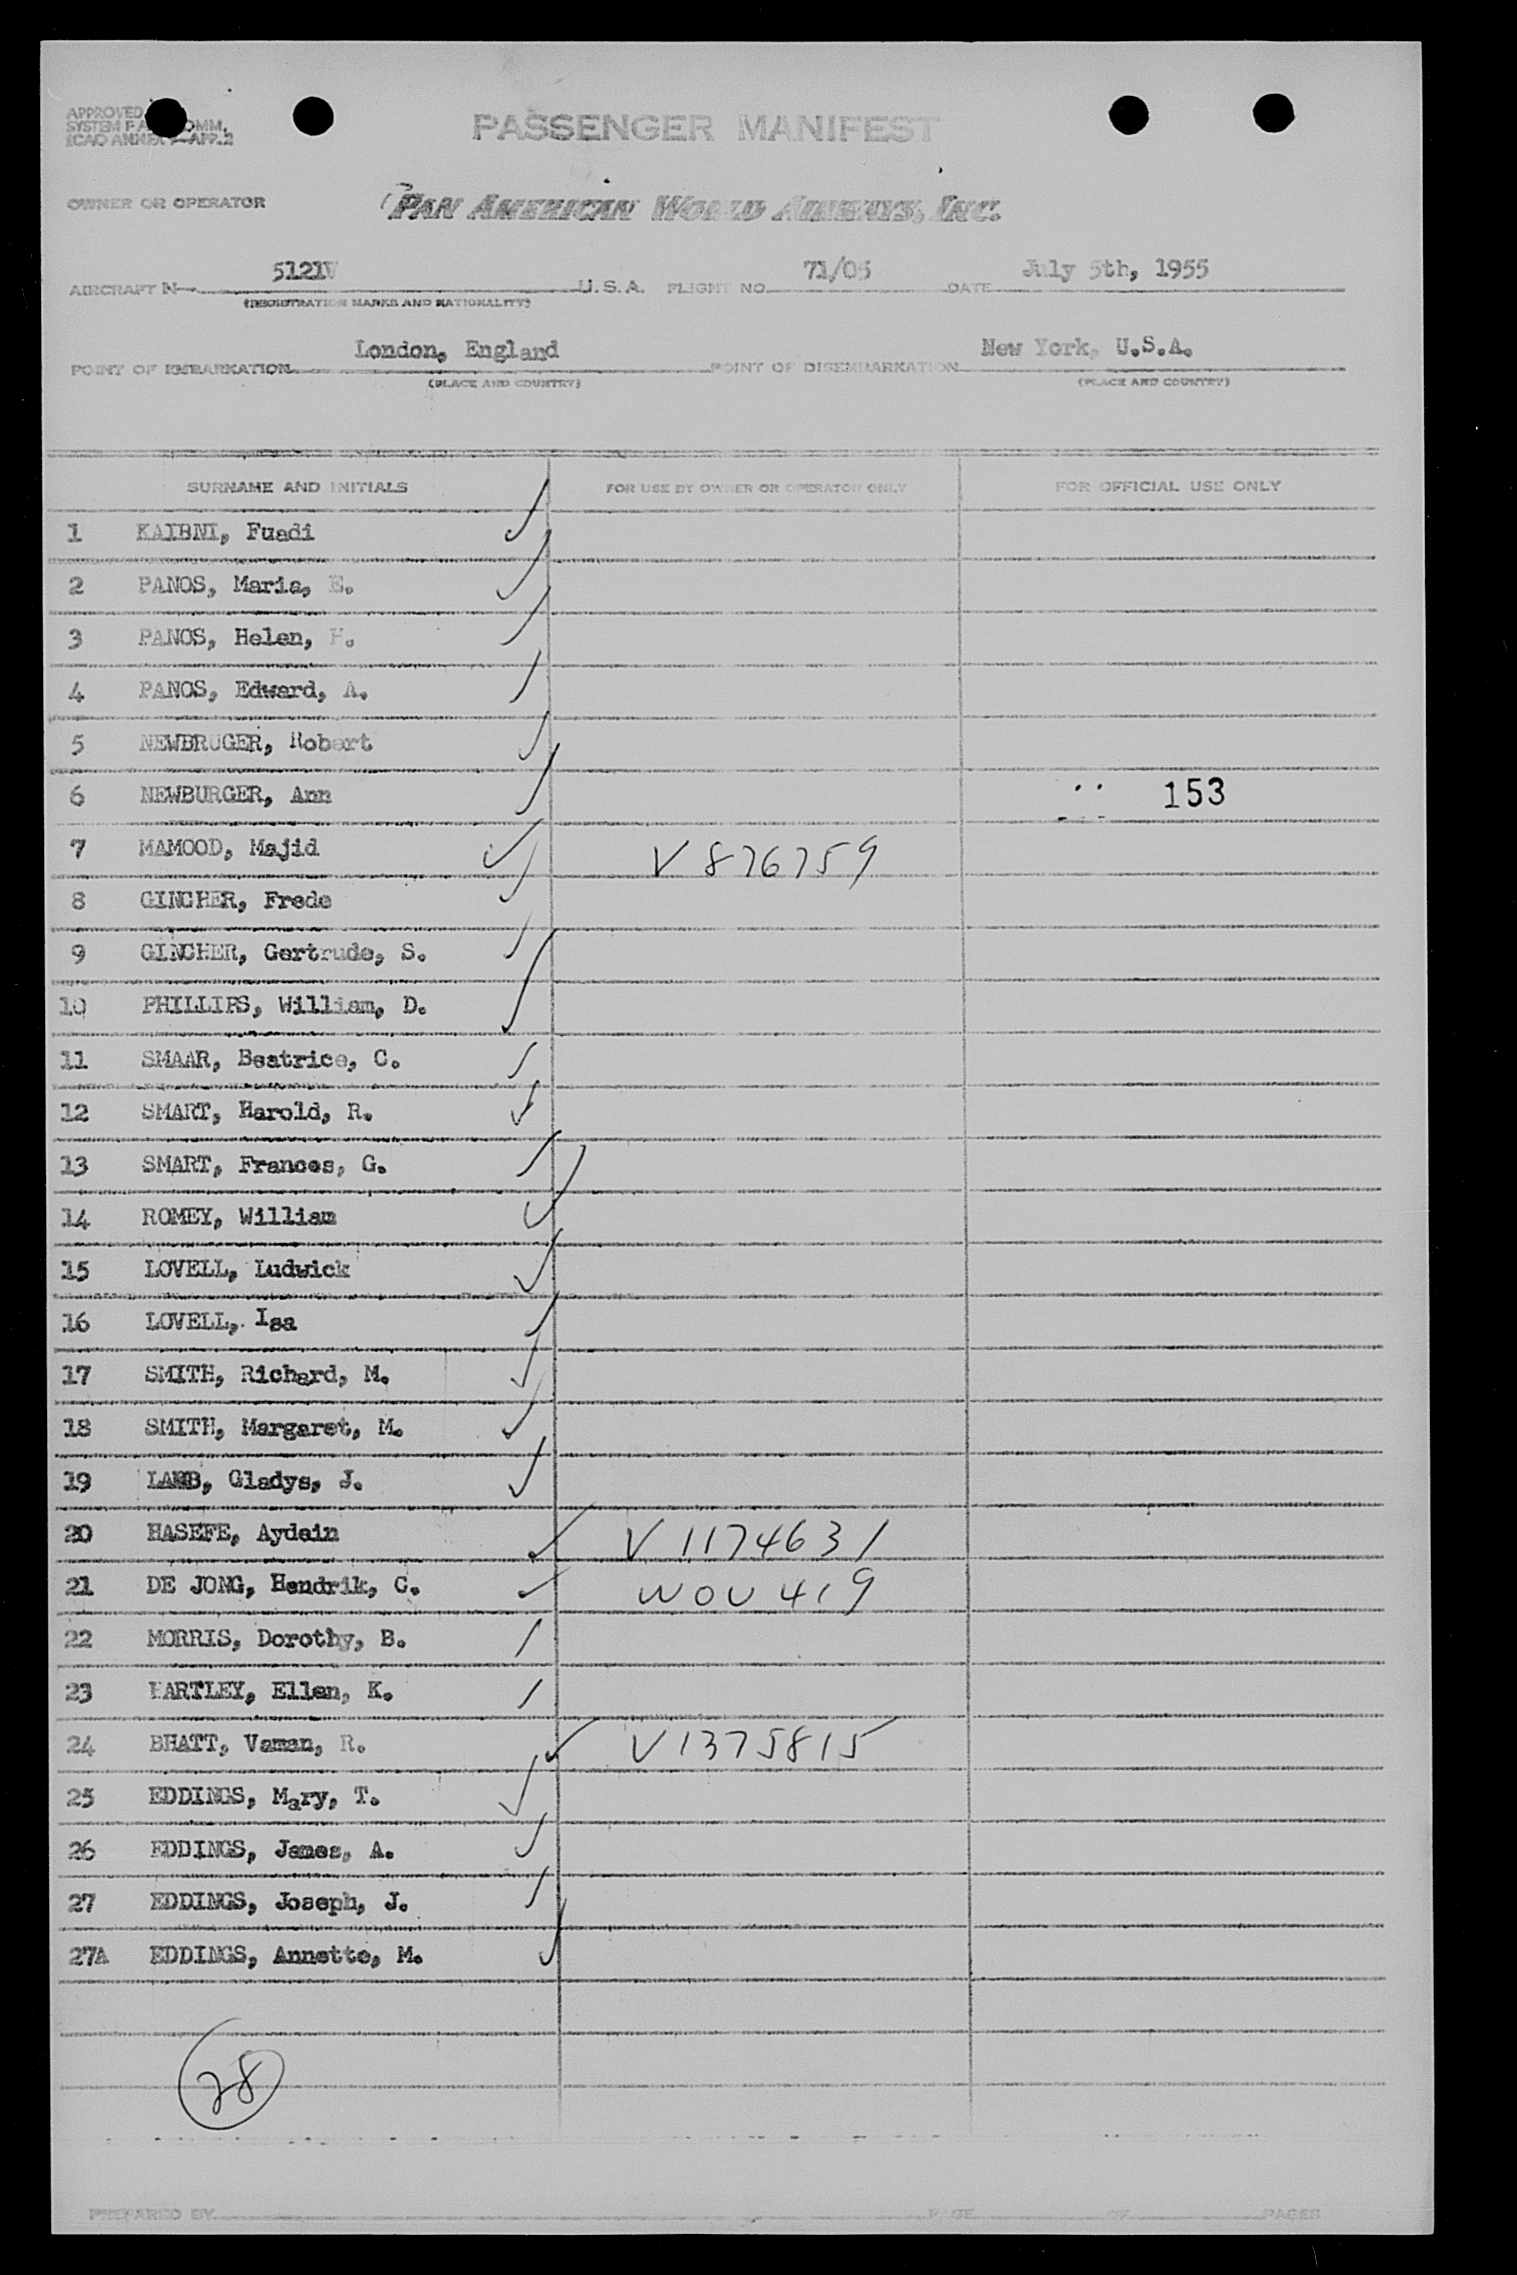 PASSENGER MANIFEST
OWNER OR OPERATOR PAN AMERICAN WORLD AIRWAYS, INC.
AIRCRAFT N 5121V U.S.A. FLIGHT NO. 71/05 DATE July 5th, 1955
(REGISTRATION MARKS AND NATIONALITY)
POINT OF EMBARKATION London, England POINT OF DISEMBARKATION New York, U.S.A.
(PLACE AND COUNTRY) (PLACE AND COUNTRY)
SURNAME AND INITIALS FOR USE BY OWNER OR OPERATOR ONLY FOR OFFICIAL USE ONLY
1 KAIBNI, Fuadi
2 PANOS, Maria, E.
3 PANOS, Helen,
4 PANOS, Edward, A.
5 NEWBRUGER, Robert
6 NEWBURGER, Ann 153
7 MAMOOD, Majid V 876759
8 GINCHER, Frede
9 GINCHER, Gertrude, S.
10 PHILLIPS, William, D.
11 SMAAR, Beatrice, C.
12 SMART, Harold, R.
13 SMART, Frances, G.
14 ROMEY, William
15 LOVELL, Ludwick
16 LOVELL, Isa
17 SMITH, Richard, M.
18 SMITH, Margaret, M.
19 LAMB, Gladys, J.
20 HASEFE, Aydein V 1174631
21 DE JONG, Hendrik, C. WOU 419
22 MORRIS, Dorothy, B.
23 HARTLEY, Ellen, K.
24 BHATT, Vaman, R. V1375815
25 EDDINGS, Mary, T.
26 EDDINGS, James, A.
27 EDDINGS, Joseph, J.
27A EDDINGS, Annette, M.
28
PREPARED BY PAGE OF PAGES